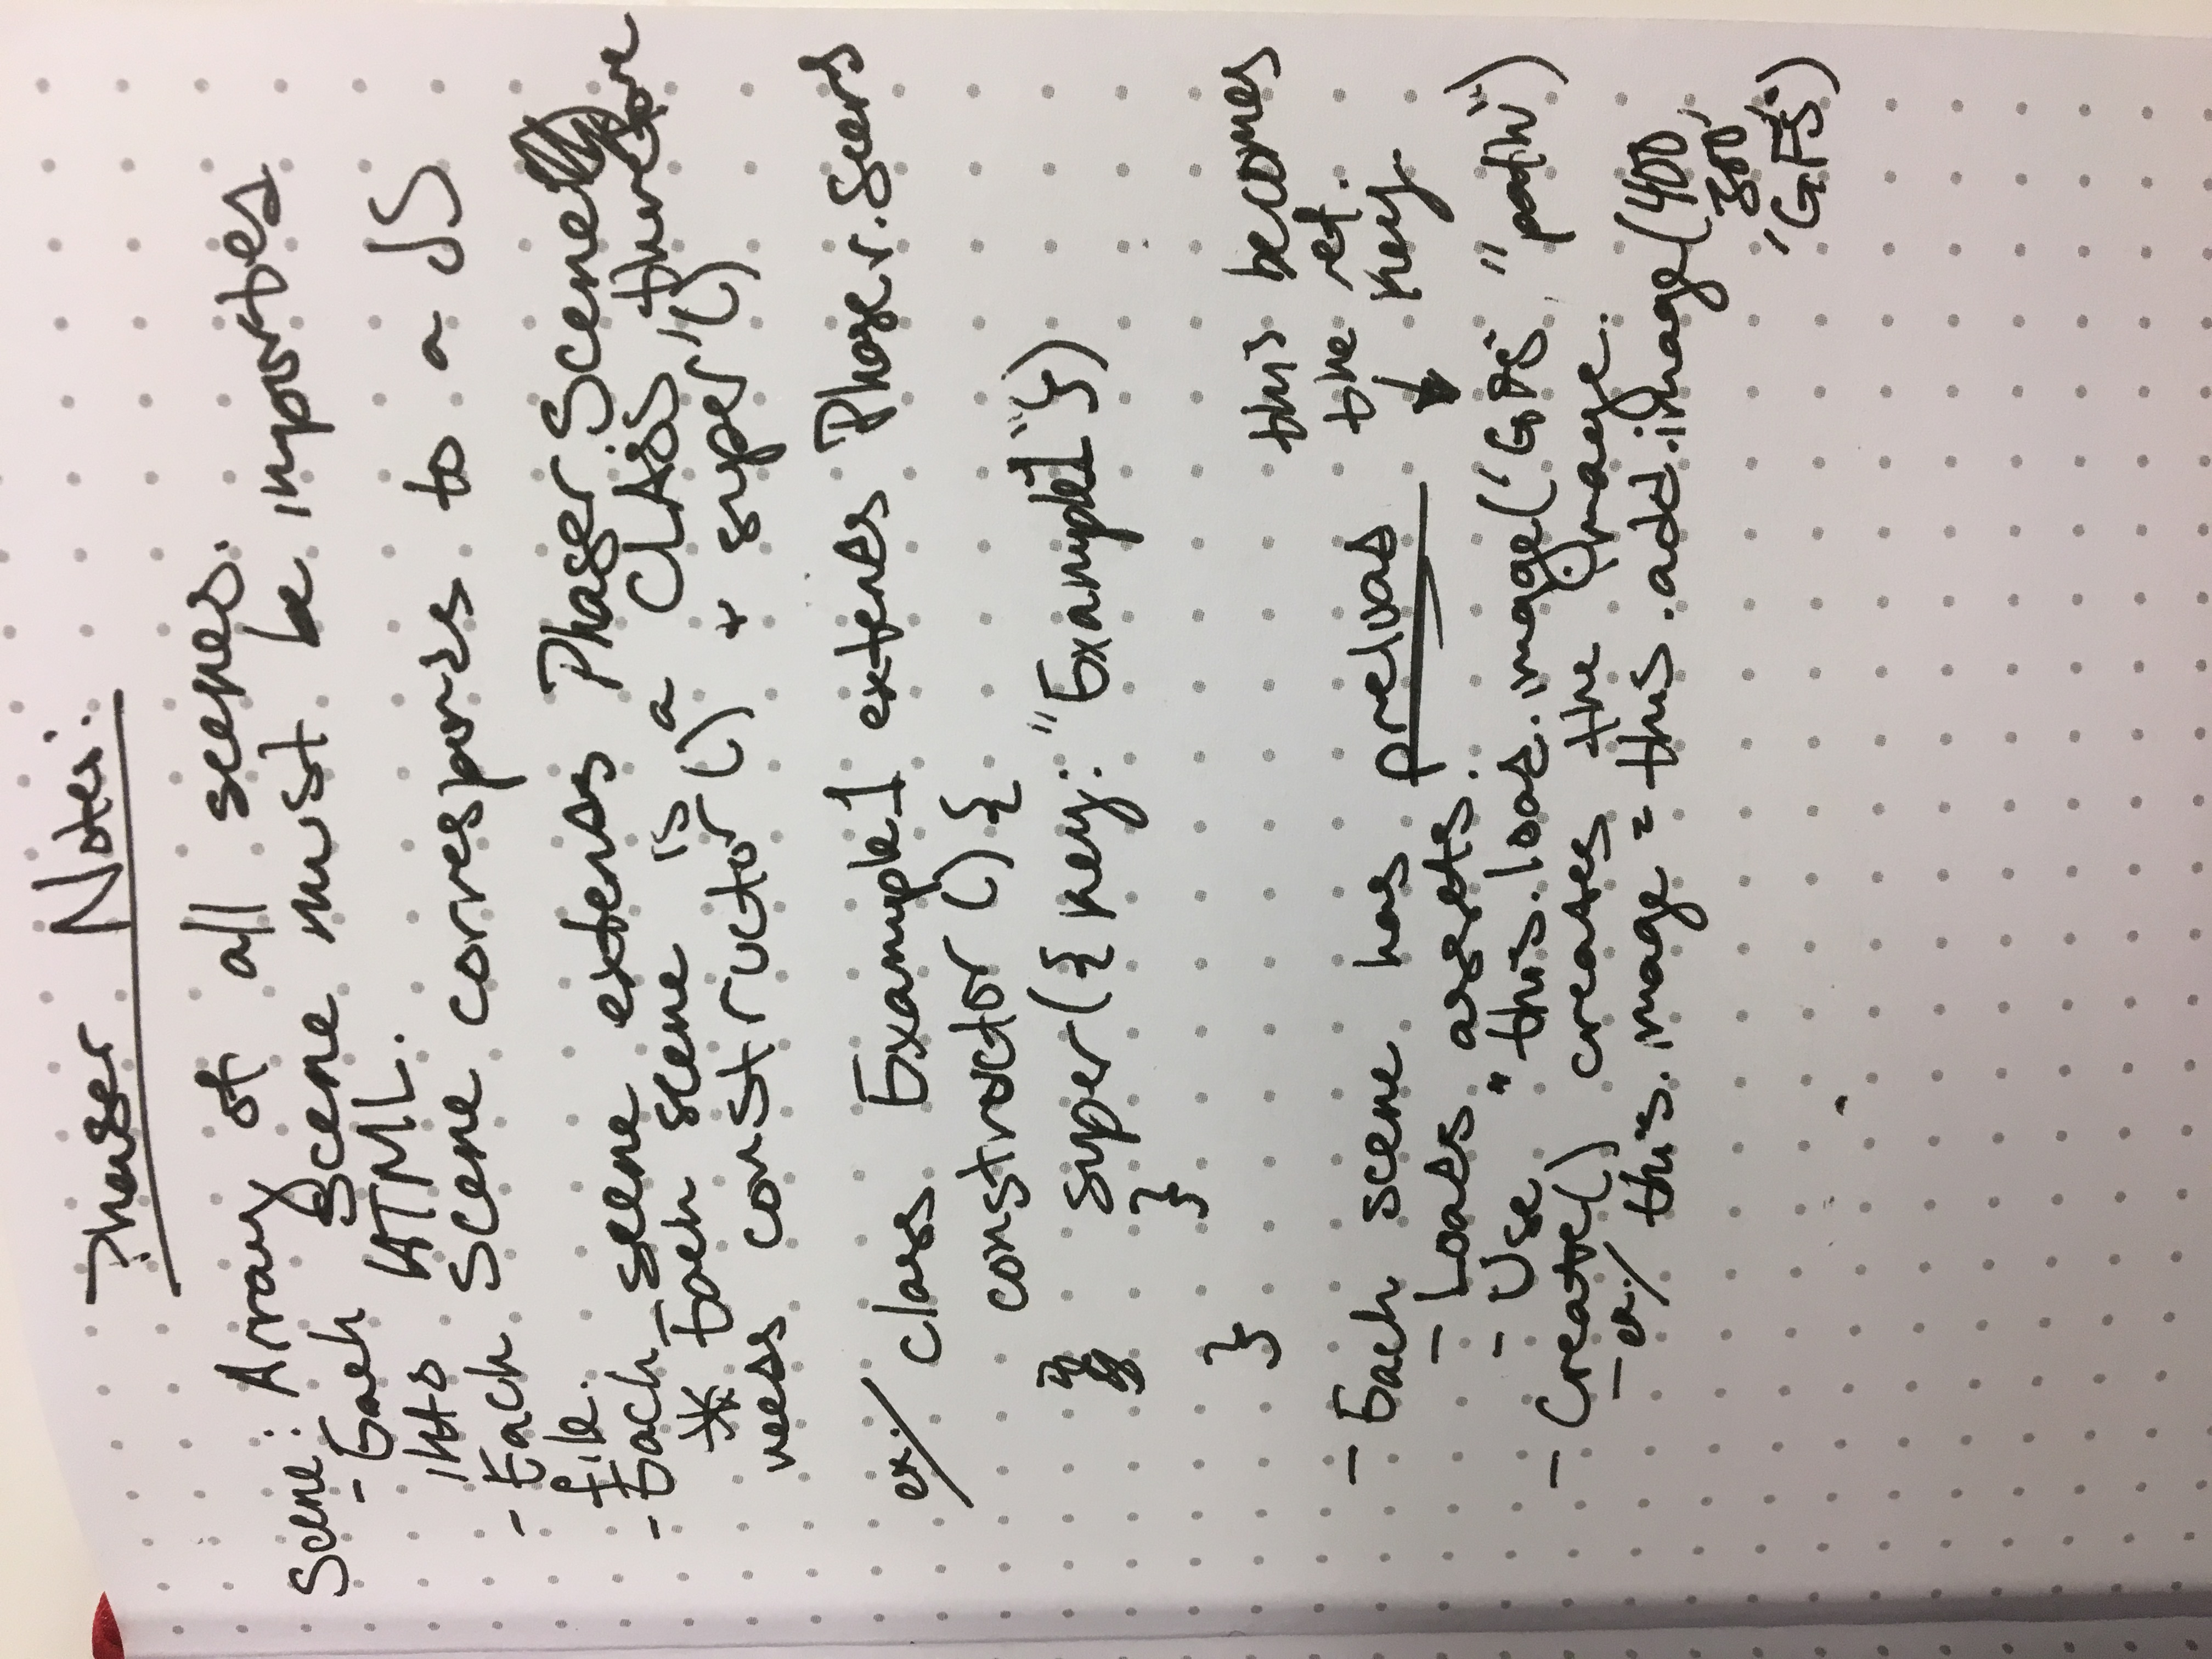 Phaser Notes:
Scene: Array of all scenes.
- Each scene must be imported
into HTML.
- Each scene corresponds to a JS
file.
- Each scene extends Phaser.Scene
* Each scene is a CLASS, therefore
needs constructor() + super()
ex./ class Example1 extends Phaser.
constructor () {
super({key: "Example1"})
}
}
this becomes
the ref.
key.
- Each scene has preload
- Loads assets.
- Use "this.load.image('GFS', "path")
- Create() creates the image.
- ex./ this.image = this.add.image(400,
300,
'GFS')